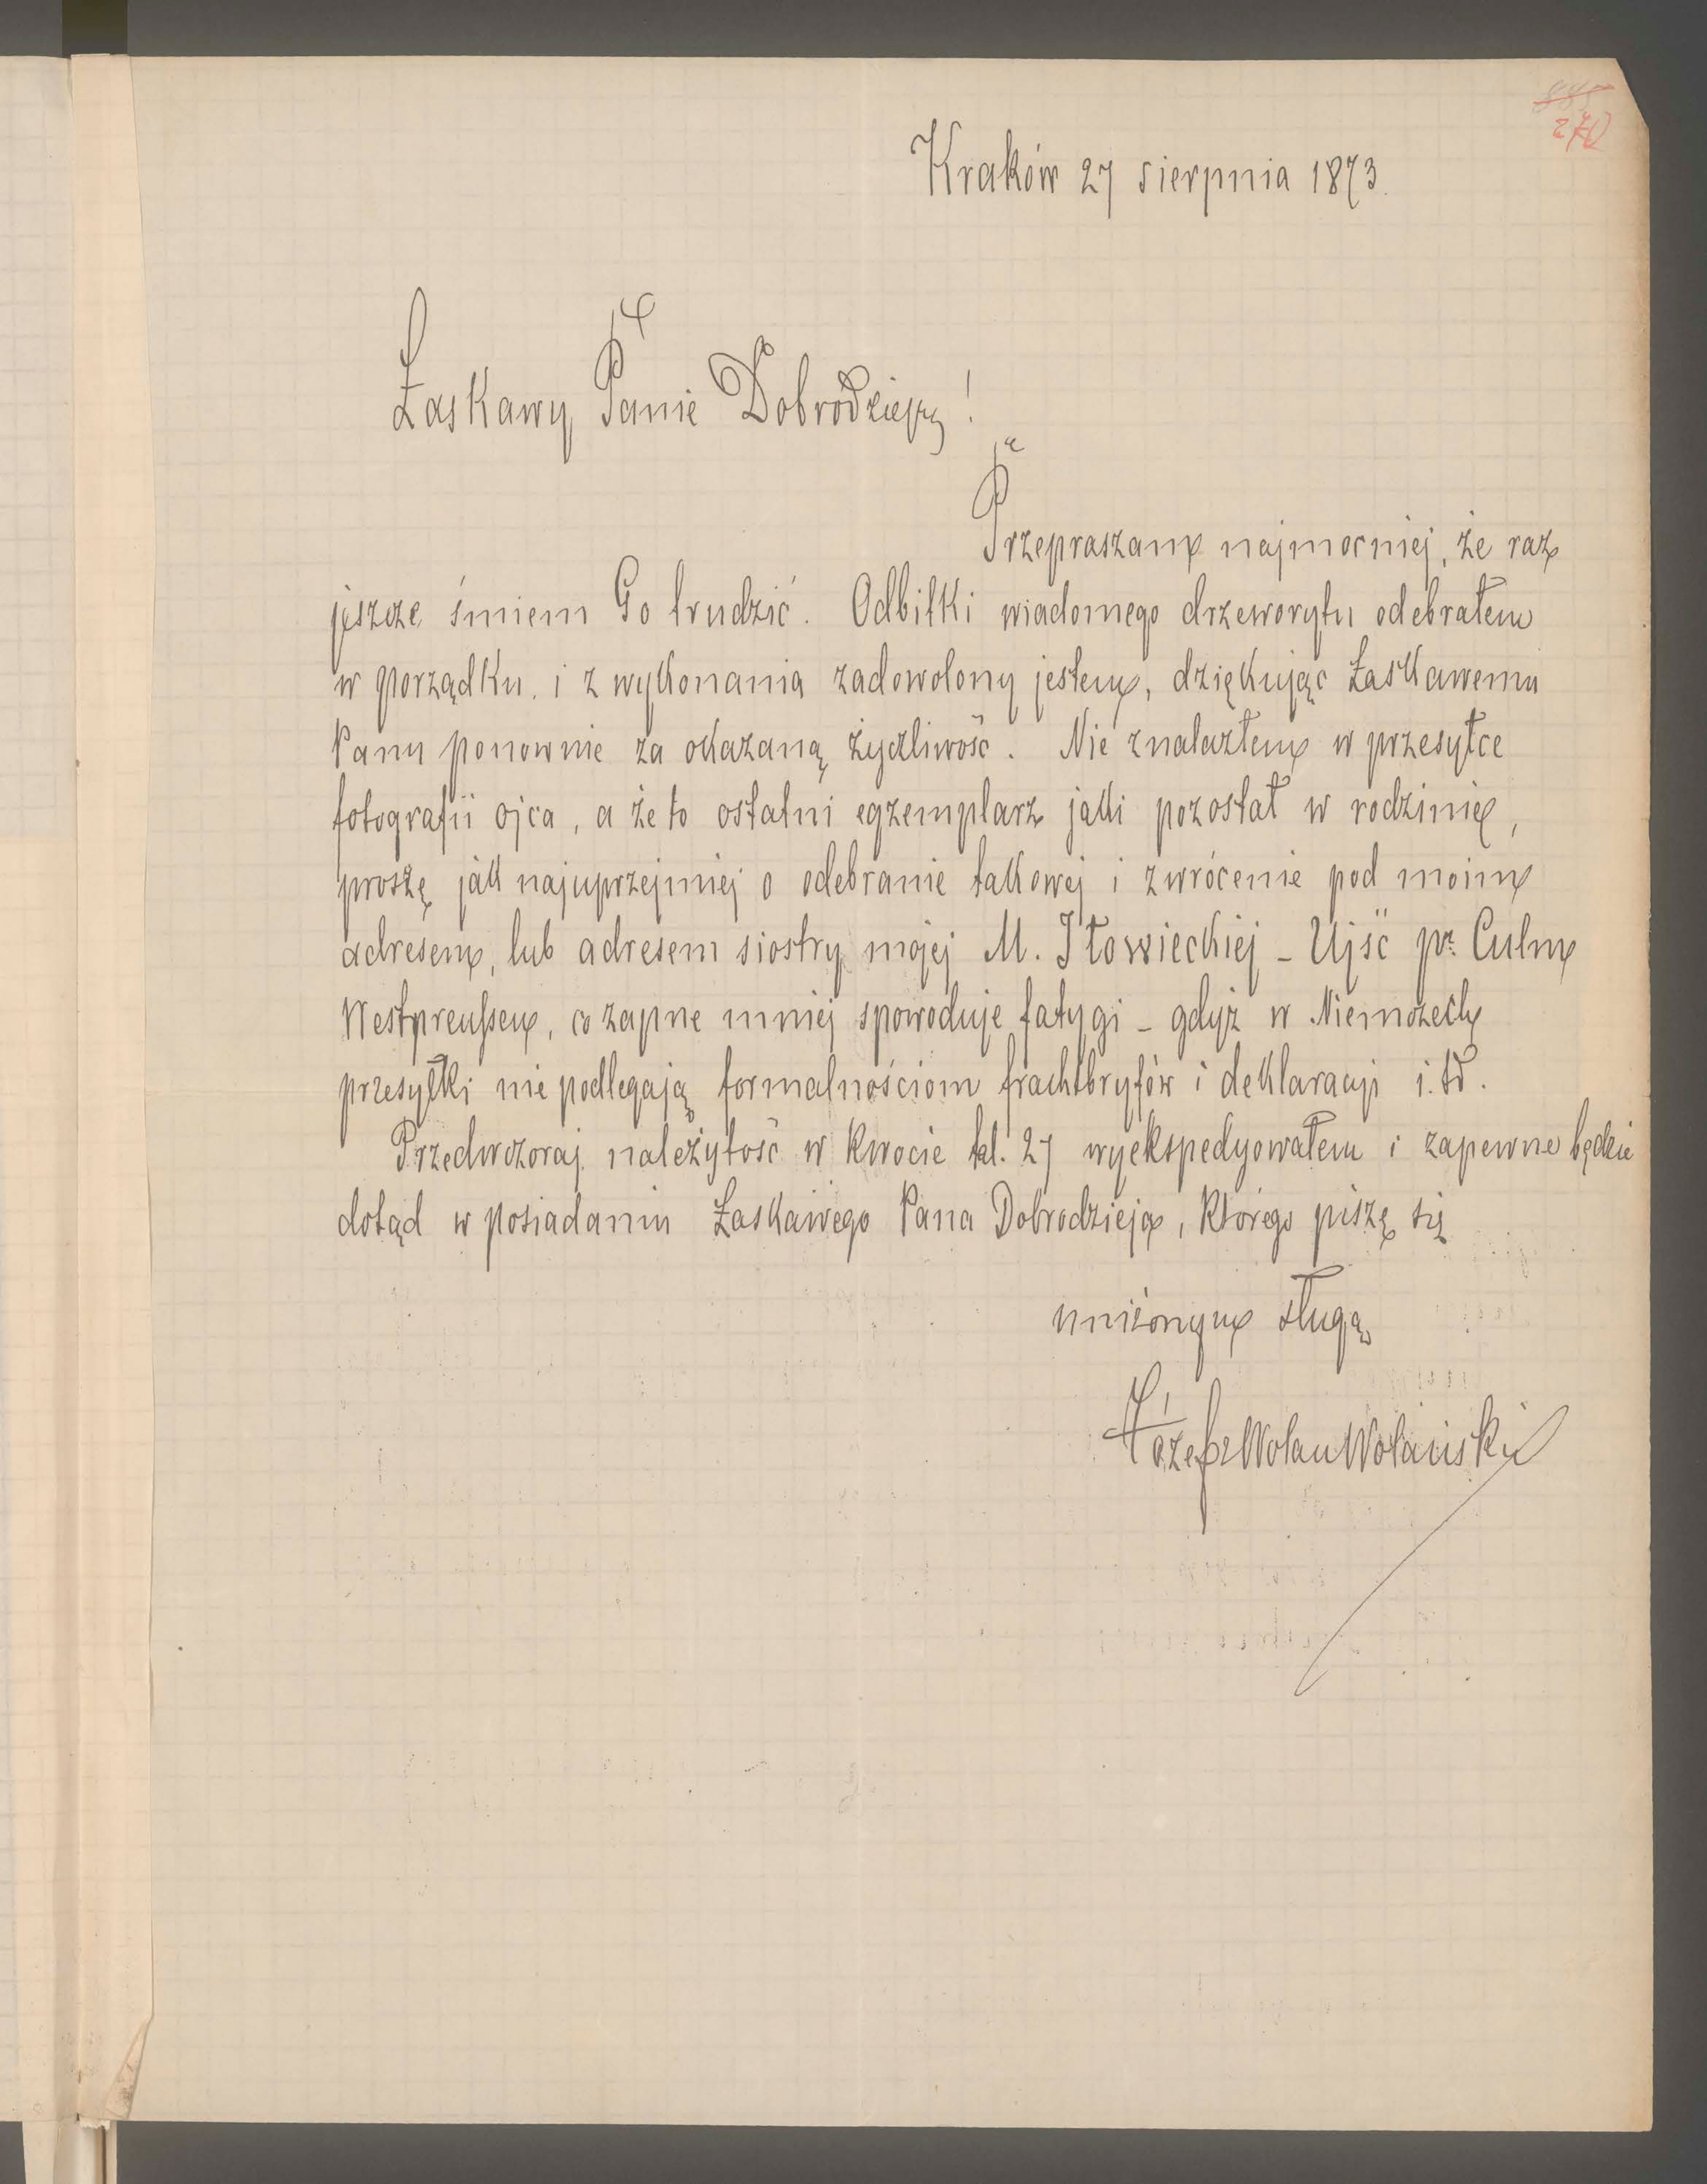 270
Kraków 27 sierpnia 1873.
Łaskawy Panie Dobrodzieju!
Przepraszam najmocniej, że raz
jeszcze śmiem Go trudzić. Odbitki wiadomego drzeworytu odebrałem
w porządku. i z wykonania zadowolony jestem, dziękując Łaskawemu
Panu ponownie za okazaną życzliwość. Nie znalazłem w przesyłce
fotografii ojca, a że to ostatni egzemplarz jaki pozostał w rodzinie,
proszę jak najuprzejmiej o odebranie takowej i zwrócenie pod moim
adresem, lub adresem siostry mojej M. Iłowieckiej _ Ujść pr. Culm
Westpreußen, co zapne mniej spowoduje fatygi _ gdyż w Niemczech
przesyłki nie podlegają formalnościom frachtbryfów i deklaracji i. td.
Przedwczoraj należytość w kwocie tal. 27 wyekspedyowałem i zapewne będzie
dotąd w posiadaniu Łaskawego Pana Dobrodzieja, którego piszę się
uniżonym sługą
Józef Wolan Wolański